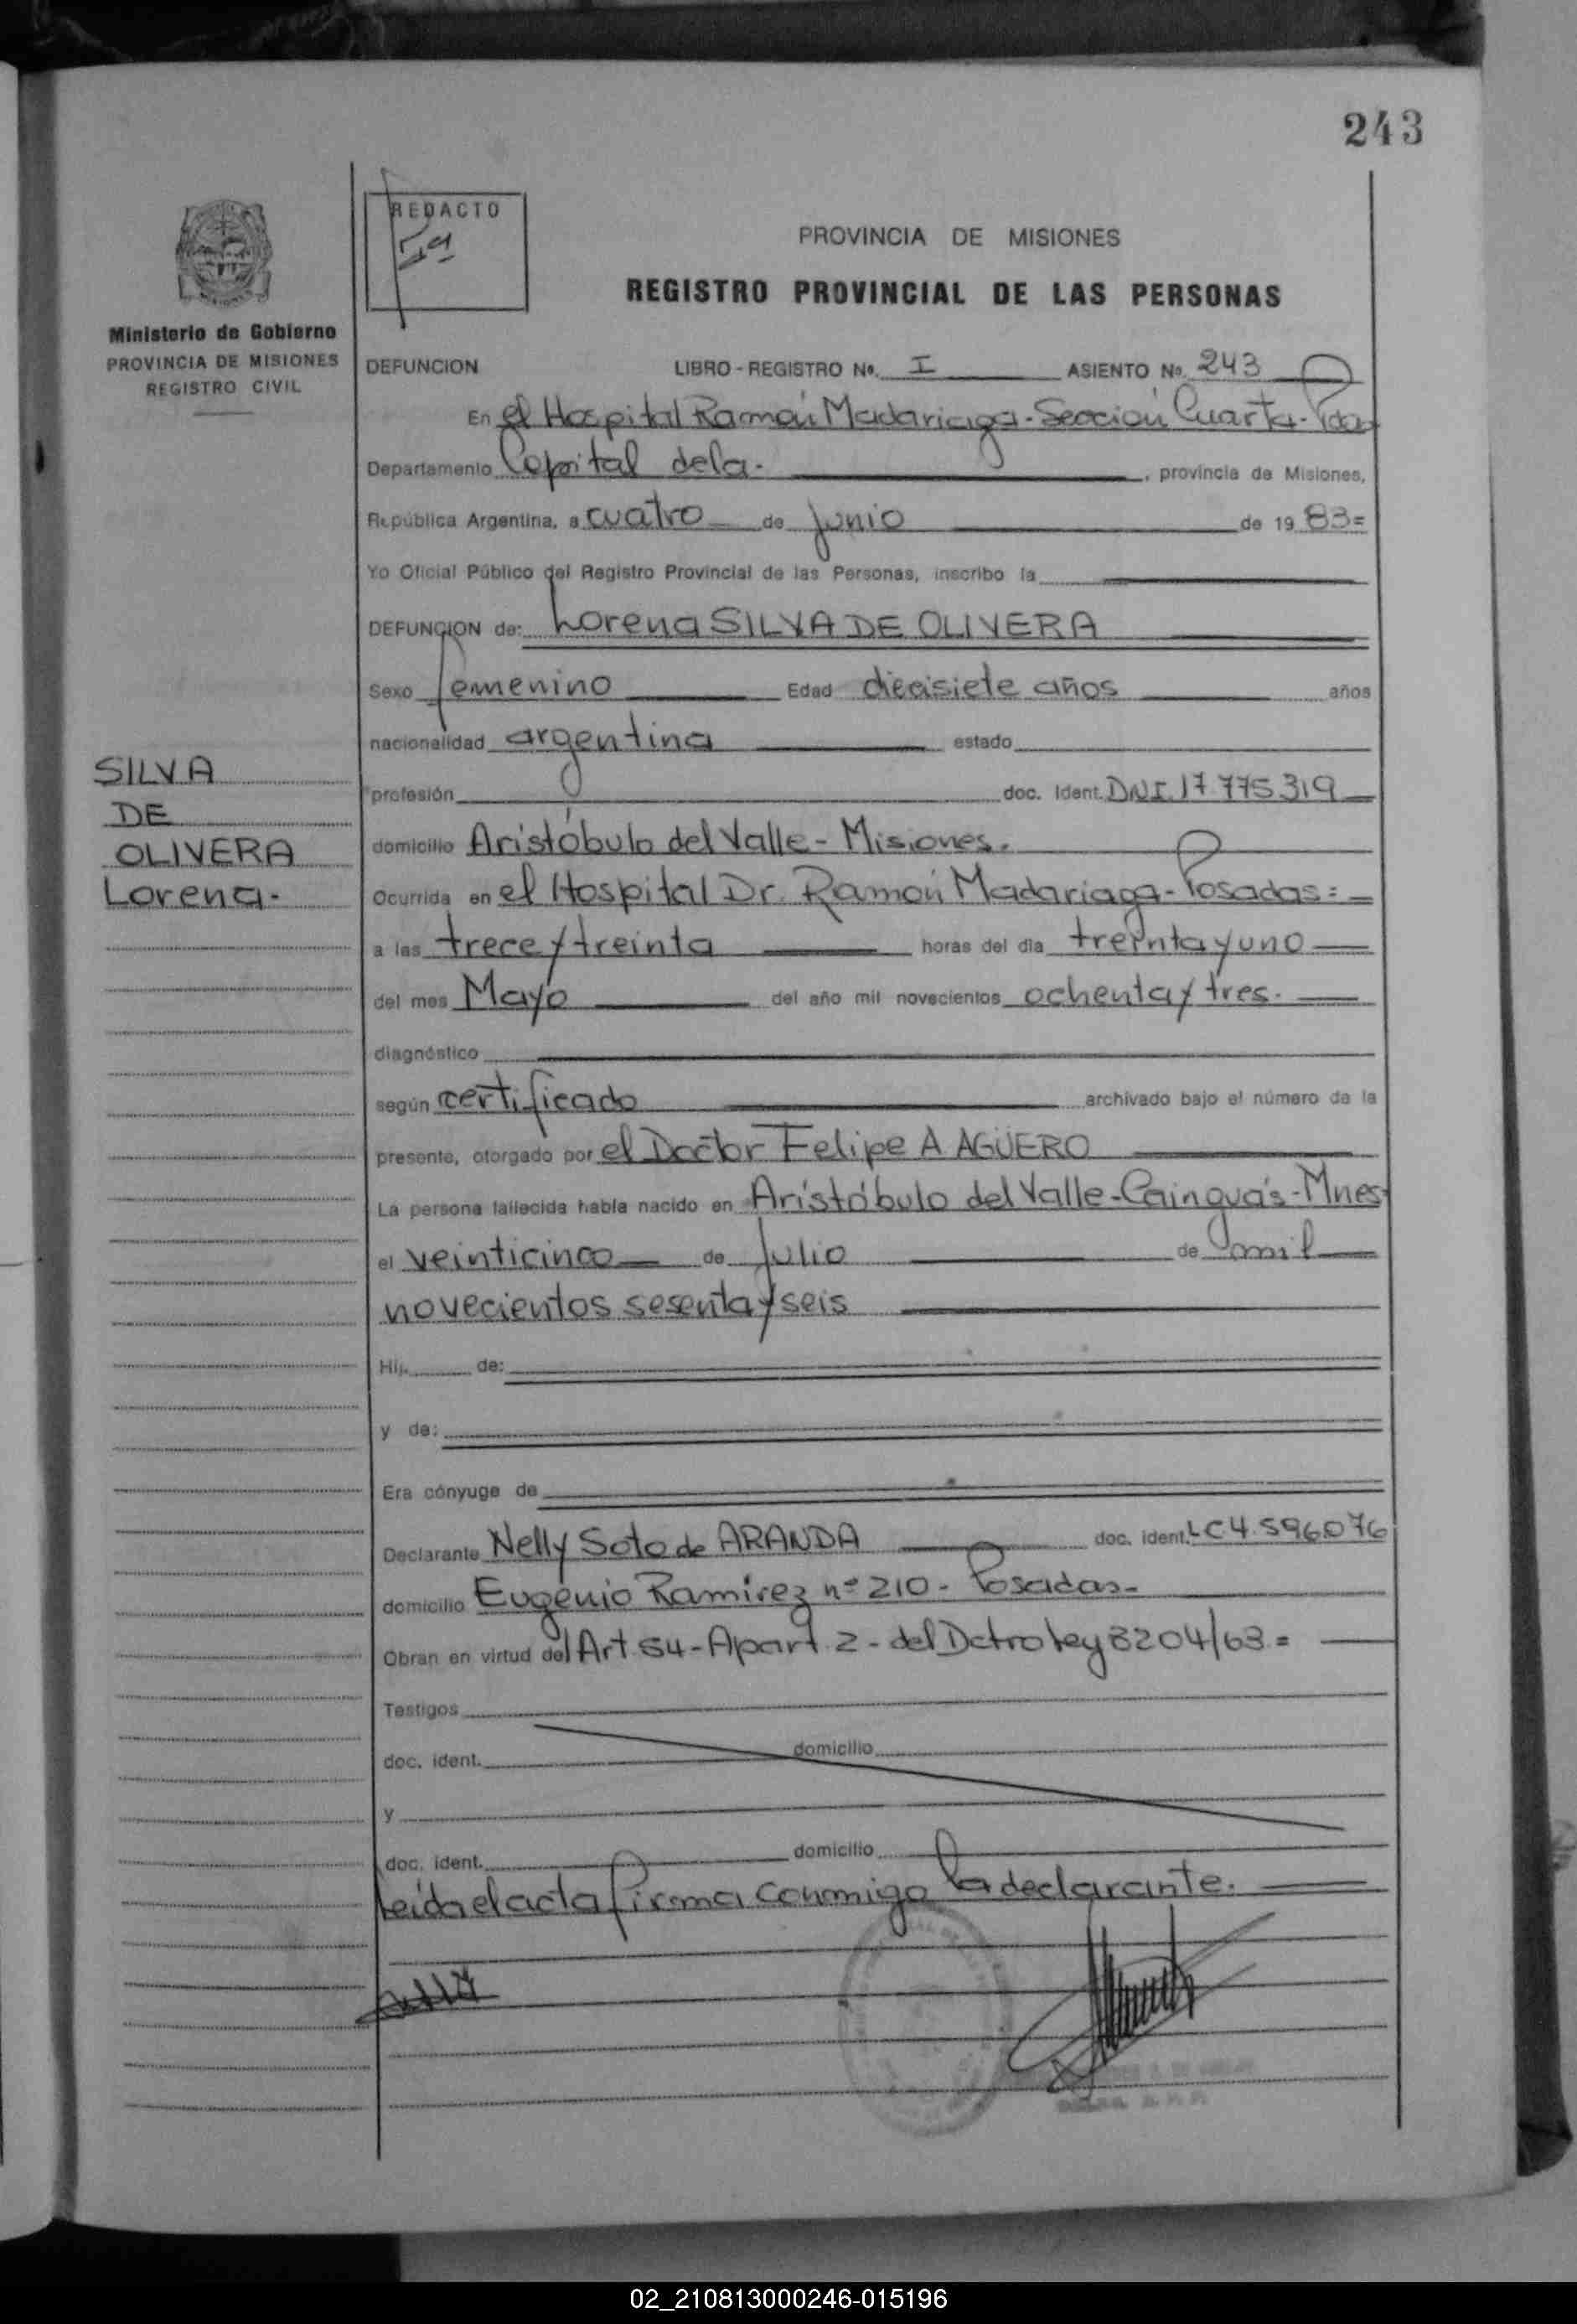 243
REDACTO
5ª
PROVINCIA DE MISIONES
REGISTRO PROVINCIAL DE LAS PERSONAS
Ministerio de Gobierno
PROVINCIA DE MISIONES
REGISTRO CIVIL
DEFUNCION LIBRO - REGISTRO Nº. I ASIENTO Nº. 243
En el Hospital Ramón Madariaga - Sección Cuarta - Pdas
Departamento Capital de la. , provincia de Misiones,
República Argentina, a cuatro de junio de 19 83=
Yo Oficial Público del Registro Provincial de las Personas, inscribo la
DEFUNCION de: Lorena SILVA DE OLIVERA
Sexo femenino Edad diecisiete años años
nacionalidad argentina estado
profesión doc. Ident. DNI. 17.775319
domicilio Aristóbulo del Valle - Misiones.
SILVA
DE
OLIVERA
Lorena.
Ocurrida en el Hospital Dr. Ramón Madariaga - Posadas: =
a las trece y treinta horas del día treinta y uno
del mes Mayo del año mil novecientos ochenta y tres.
diagnóstico
según certificado archivado bajo el número de la
presente, otorgado por el Doctor Felipe A AGÜERO
La persona fallecida había nacido en Aristóbulo del Valle - Cainguás - Mnes
el veinticinco de Julio de mil
novecientos sesenta y seis
Hij. de:
y de:
Era cónyuge de
Declarante Nelly Soto de ARANDA doc. ident. LC 4.596.076
domicilio Eugenio Ramirez nº 210 - Posadas -
Obran en virtud del Art 54 - Apart. 2 - del Dctro ley 8204/63 =
Testigos
doc. ident. domicilio
y
doc. ident. domicilio
Leída el acta firma conmigo la declarante.
02_210813000246-015196